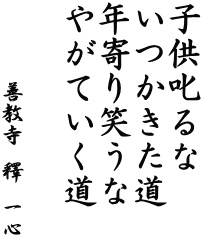 子供叱るな
いつかきた道
年寄り笑うな
やがていく道
善教寺 釋 一心